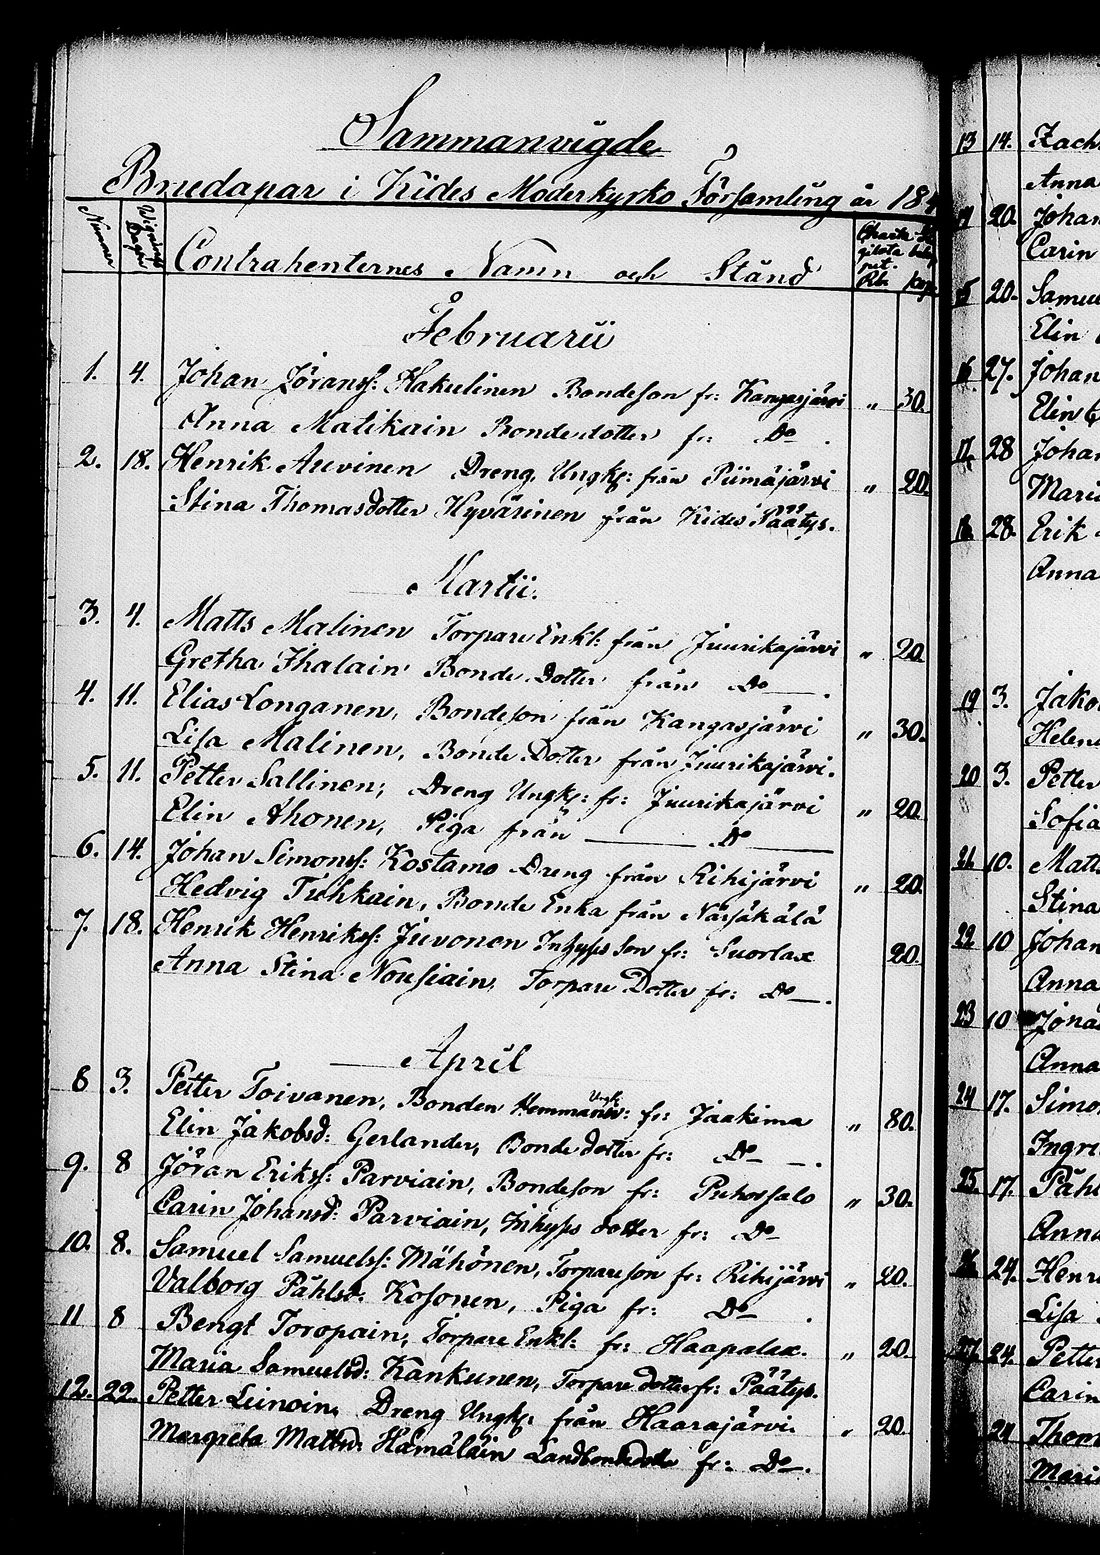 Sammanvigde
Brudapar i Kides Moderkyrko Församling år 184
Nummer Wignings Dagar Contrahenternes Namn och Stånd Charta Rb. kop.
Februarii
1. 4. Johan Jöranss: Hakulinen Bondeson fr: Kangasjärvi " 30.
Anna Matikain Bondedotter fr: Do.
2. 18. Henrik Auvinen Dreng, Ungk: från Piimäjärvi " 20.
Stina Thomasdotter Hyvärinen från Kides Päätys.
Martii.
3. 4. Matts Malinen Torpare Enkl: från Juurikajärvi " 20.
Gretha Ihalain Bonde Dotter från Do.
4. 11. Elias Longanen, Bondeson från Kangasjärvi " 30.
Lisa Malinen, Bonde Dotter från Juurikajärvi.
5. 11. Petter Sallinen, Dreng Ungk: fr: Juurikajärvi " 20.
Elin Ahonen, Piga från Do
6. 14. Johan Simonss: Kostamo Dreng från Rihijärvi " 20.
Hedvig Tuhkain, Bonde Enka från Närsäkälä
7. 18. Henrik Henrikss: Juvonen Inhyss Son fr: Suorlax 20.
Anna Stina Nousiain, Torpare Dotter fr: Do.
April
8 3. Petter Toivanen, Bonden Ungk: fr: Jaakima " 80.
Elin Jakobsd: Gerlander, Bonde dotter fr: Do.
9. 8 Jöran Erikss: Parviain, Bondeson fr: Puhossalo " 30.
Carin Johansd: Parviain, Inhyss dotter fr: Do
10. 8. Samuel Samuelss: Mähönen, Torpareson fr: Rihijärvi " 20.
Valborg Påhlsd: Kosonen, Piga fr: Do.
11 8 Bengt Toropain, Torpare Enkl: fr: Haapalax. " 20.
Maria Samuelsd: Kankunen, Torpare dotter fr: Päätys.
12. 22. Petter Leinoin, Dreng Ungk: från Haarajärvi. " 20
Margreta Mattsd: Hämäläin Landbondedotter fr: Do.
13 14. Zach
Anna
14 20. Johan
Carin
15 20. Samue
Elin
16 27. Johan
Elin
17. 28 Johan
Maria
18. 28. Erik
Anna
19 3. Jako
Helena
20 3. Petter
Sofia
21 10. Matts
Stina
22 10 Johan
Anna
23 10 Jona
Anna
24 17. Simo
Ingri
25. 17. Påhl
Anna
26. 24. Henri
Lisa
27. 24. Petter
Carin
24 Thom
Mari